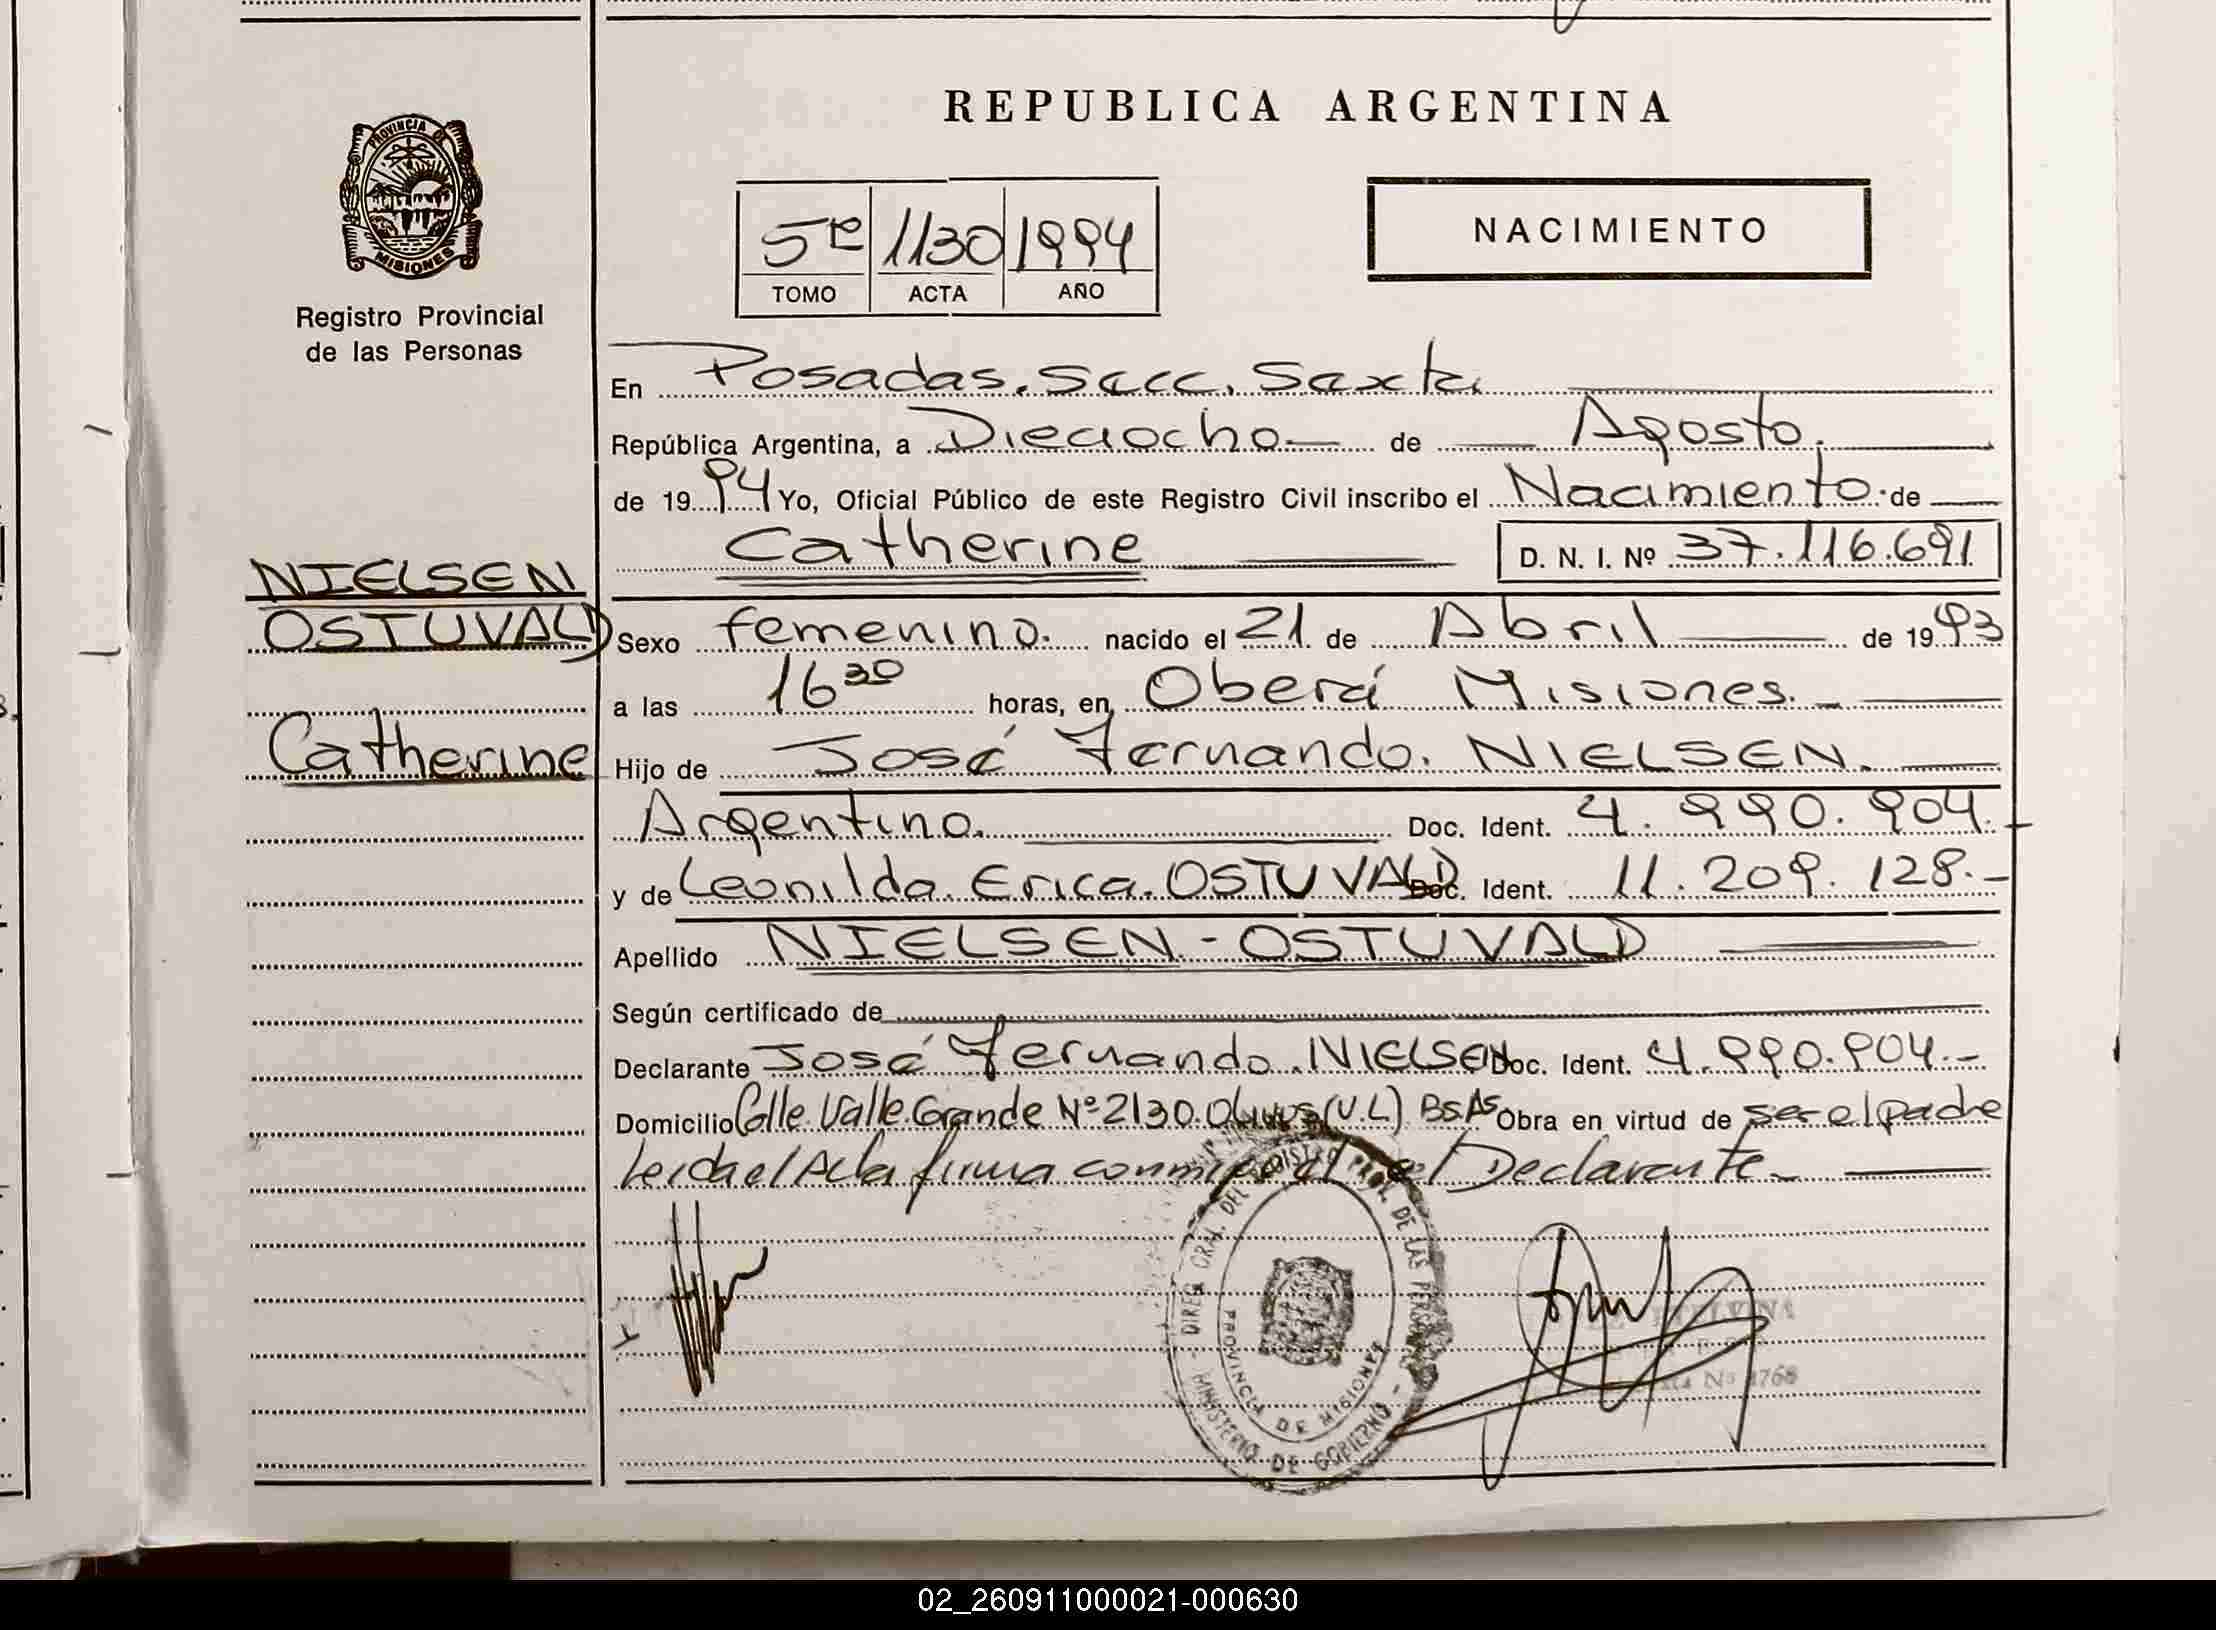 REPUBLICA ARGENTINA
PROVINCIA DE
MISIONES
Registro Provincial
de las Personas
5te 1130 1994
TOMO ACTA AÑO
NACIMIENTO
En Posadas. Secc. Sexta
República Argentina, a Dieciocho de Agosto.
de 1994 Yo, Oficial Público de este Registro Civil inscribo el Nacimiento de
Catherine D. N. I. Nº 37.116.691
NIELSEN
OSTUVALD
Catherine
Sexo femenino. nacido el 21 de Abril de 1993
a las 16 30 horas, en Oberá Misiones.
Hijo de José Fernando. NIELSEN.
Argentino. Doc. Ident. 4.990.904.-
y de Leonilda. Erica. OSTUVALD Doc. Ident. 11.209.128.-
Apellido NIELSEN - OSTUVALD
Según certificado de
Declarante José Fernando. NIELSEN Doc. Ident. 4.990.904.-
Domicilio Calle. Valle. Grande Nº 2130. Olivos (V.L) BsAs Obra en virtud de ser el padre
Leida el Acta firma conmigo el Declarante-
DIREC. GRAL. DEL REGISTRO PROV. DE LAS PERSONAS
PROVINCIA DE MISIONES
- MINISTERIO DE GOBIERNO -
02_260911000021-000630